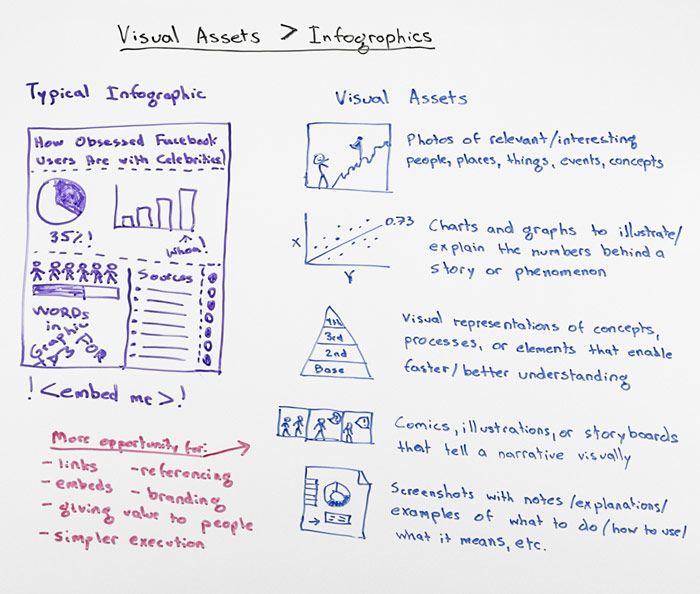 Visual Assets > Infographics
Typical Infographic
How Obsessed Facebook
Users Are with Celebrities!
35%!
Whoa!
Sources
WORDS
in
Graphic
FOR
! <embed me> !
More opportunity for:
- links
- referencing
- embeds
- branding
- giving value to people
- simpler execution
Visual Assets
Photos of relevant/interesting
people, places, things, events, concepts
X
Y
0.73
Charts and graphs to illustrate/
explain the numbers behind a
story or phenomenon
4th
3rd
2nd
Base
Visual representations of concepts,
processes, or elements that enable
faster/better understanding
Comics, illustrations, or storyboards
that tell a narrative visually
Screenshots with notes/explanations/
examples of what to do/how to use/
what it means, etc.